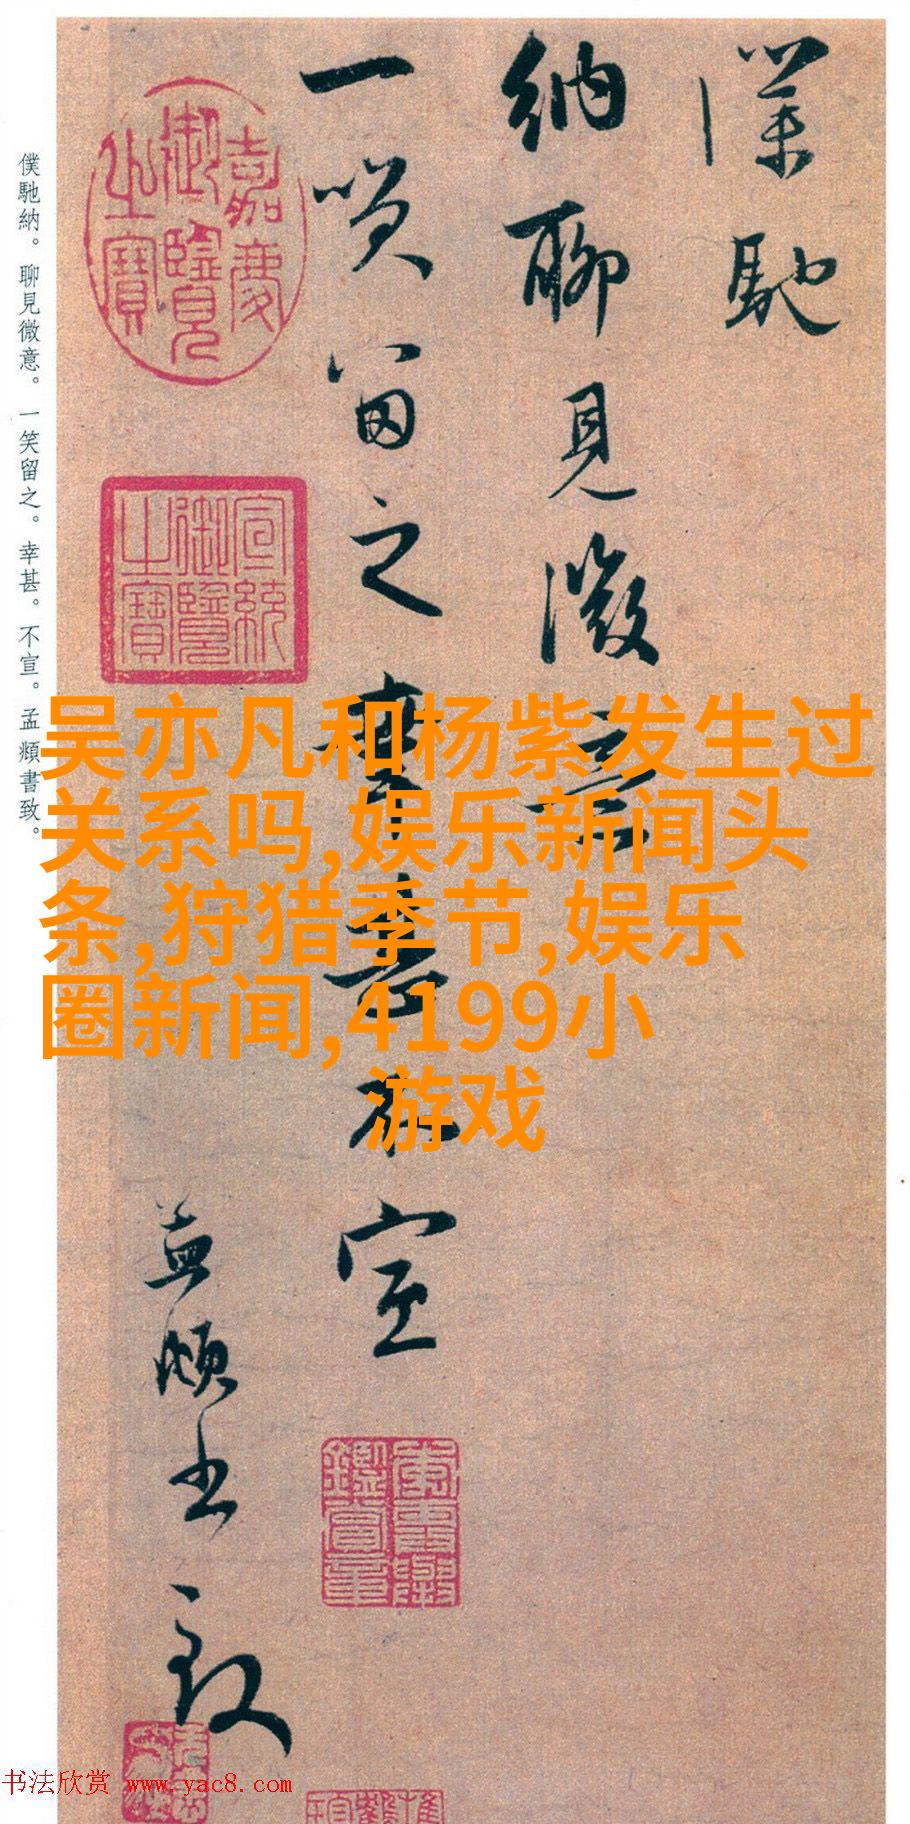 僕馳
納聊見微意
一笑留之幸甚不宣
孟頫書致
嘉慶御覽之寶
宣統御覽之寶
僕馳納。聊見微意。一笑留之。幸甚。不宣。孟頫書致。
吴亦凡和杨紫发生过
关系吗,娱乐新闻头
条,狩猎季节,娱乐
圈新闻,4199小
游戏
书法欣赏 www.yac8.com